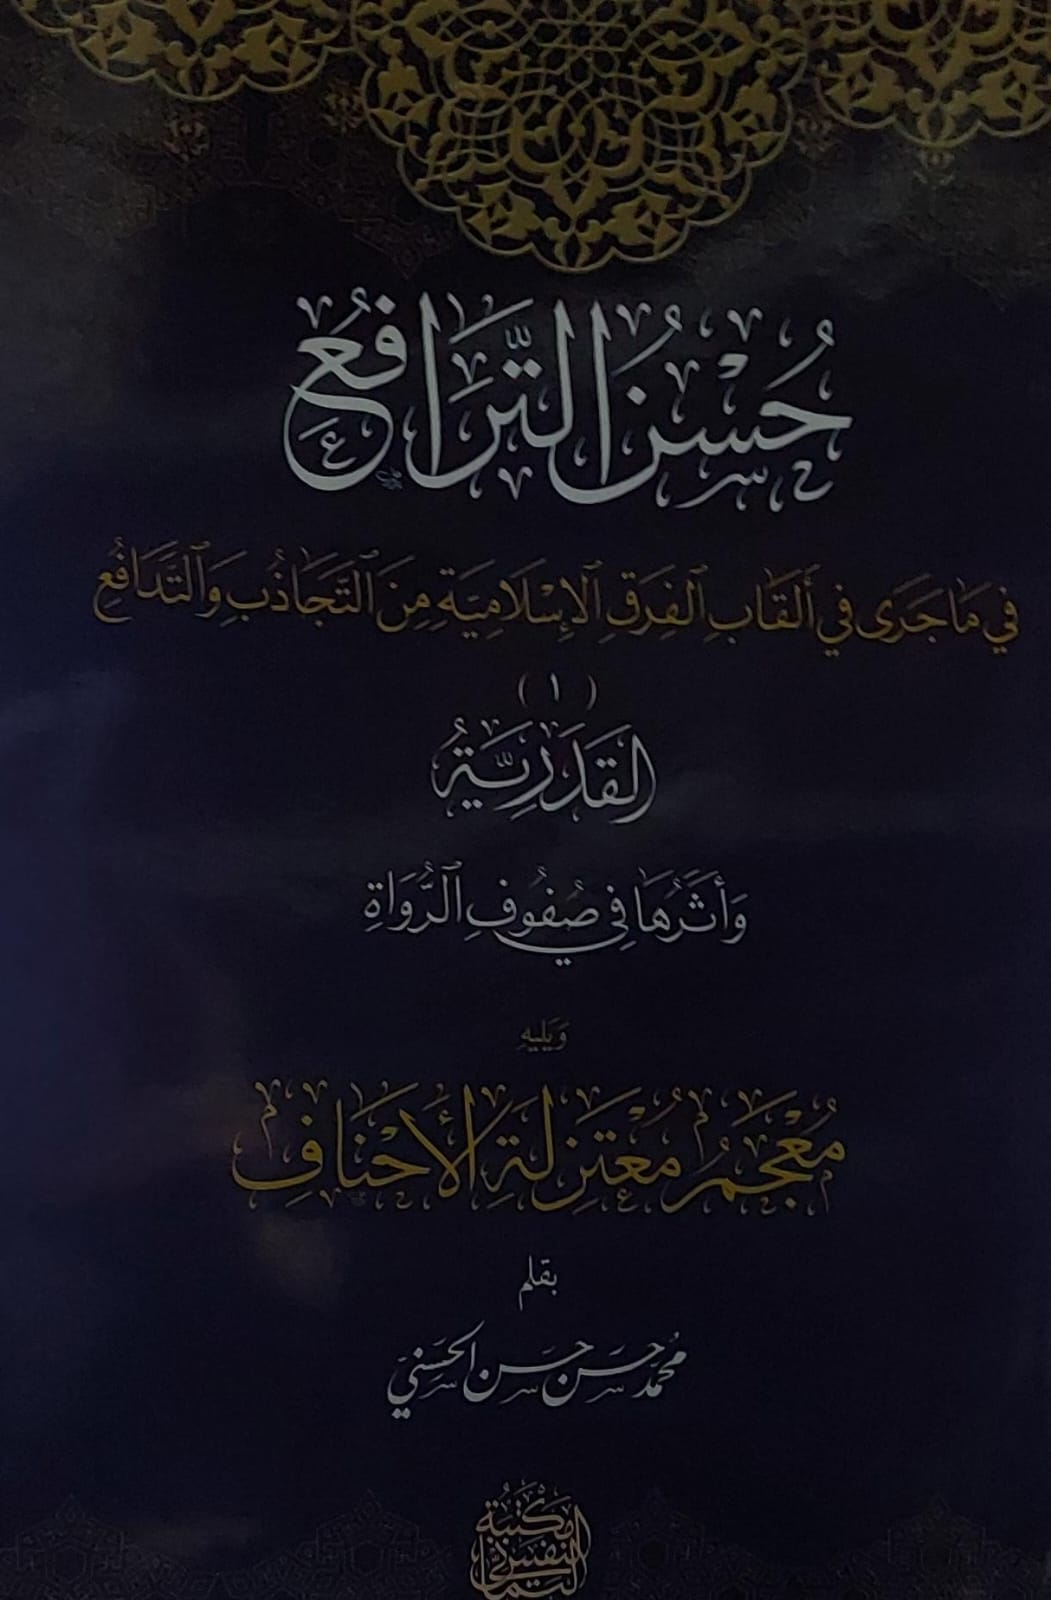 حُسْنُ التَّرَافُعِ
فِي مَا جَرَى فِي أَلْقَابِ الْفِرَقِ الْإِسْلَامِيَّةِ مِنَ التَّجَاذُبِ وَالتَّدَافُعِ
(١)
القَدَرِيَّةُ
وَأَثَرُهَا فِي صُفُوفِ الرُّوَاةِ
وَيَلِيهِ
مُعْجَمُ مُعْتَزِلَةِ الْأَحْنَافِ
بقلم
مُحَمَّد حَسَن حَسَن الحَسَنِيّ
مكتبة
النفيس